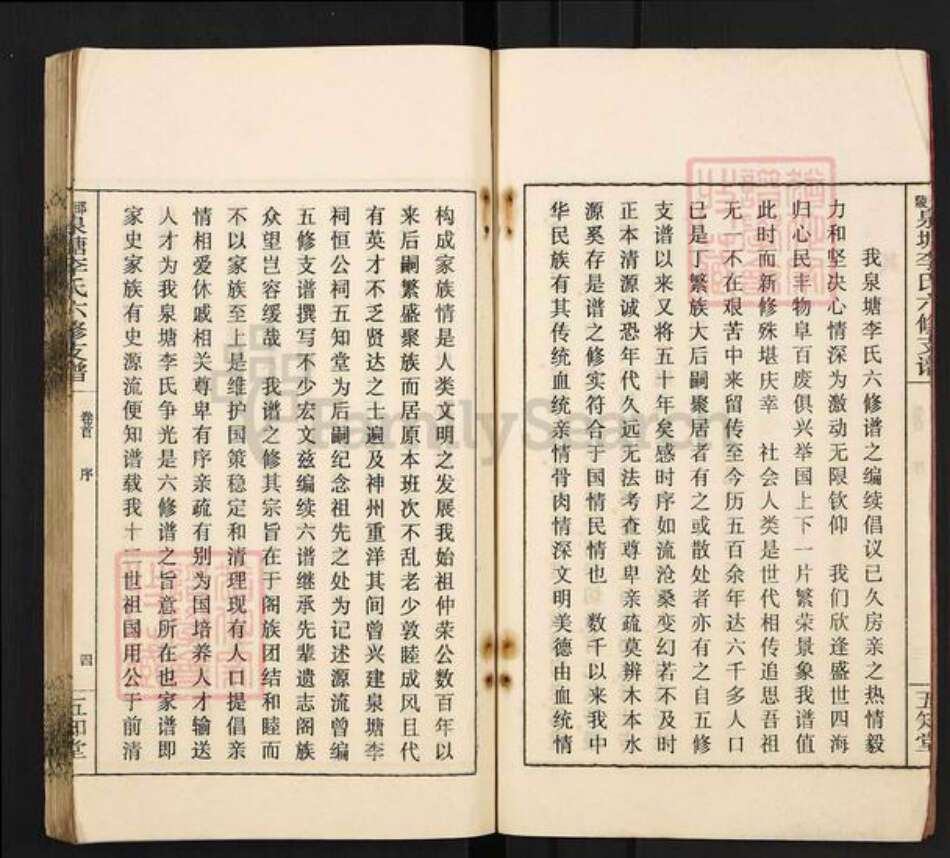 泉塘李氏六修支谱
五知堂
我泉塘李氏六修谱之编续倡议已久房亲之热情毅
力和坚决心情深为激动无限钦仰 我们欣逢盛世四海
归心民丰物阜百废俱兴举国上下一片繁荣景象我谱值
此时而新修殊堪庆幸 社会人类是世代相传追思吾祖
无一不在艰苦中来留传至今历五百余年达六千多人口
已是丁繁族大后嗣聚居者有之或散处者亦有之自五修
支谱以来又将五十年矣感时序如流沧桑变幻若不及时
正本清源诚恐年代久远无法考查尊卑亲疏莫辨木本水
源奚存是谱之修实符合于国情民情也 数千以来我中
华民族有其传统血统亲情骨肉情深文明美德由血统情
构成家族情是人类文明之发展我始祖仲荣公数百年以
来后嗣繁盛聚族而居原本班次不乱老少敦睦成风且代
有英才不乏贤达之士遍及神州重洋其间曾兴建泉塘李
祠恒公祠五知堂为后嗣纪念祖先之处为记述源流曾编
五修支谱撰写不少宏文兹编续六谱继承先辈遗志阖族
众望岂容缓哉 我谱之修其宗旨在于阖族团结和睦而
不以家族至上是维护国策稳定和清理现有人口提倡亲
情相爱休戚相关尊卑有序亲疏有别为国培养人才输送
人才为我泉塘李氏争光是六修谱之旨意所在也家谱即
家史家族有史源流便知谱载我十二世祖国用公于前清
泉塘李氏六修支谱
卷首 序
四
五知堂
FamilySearch